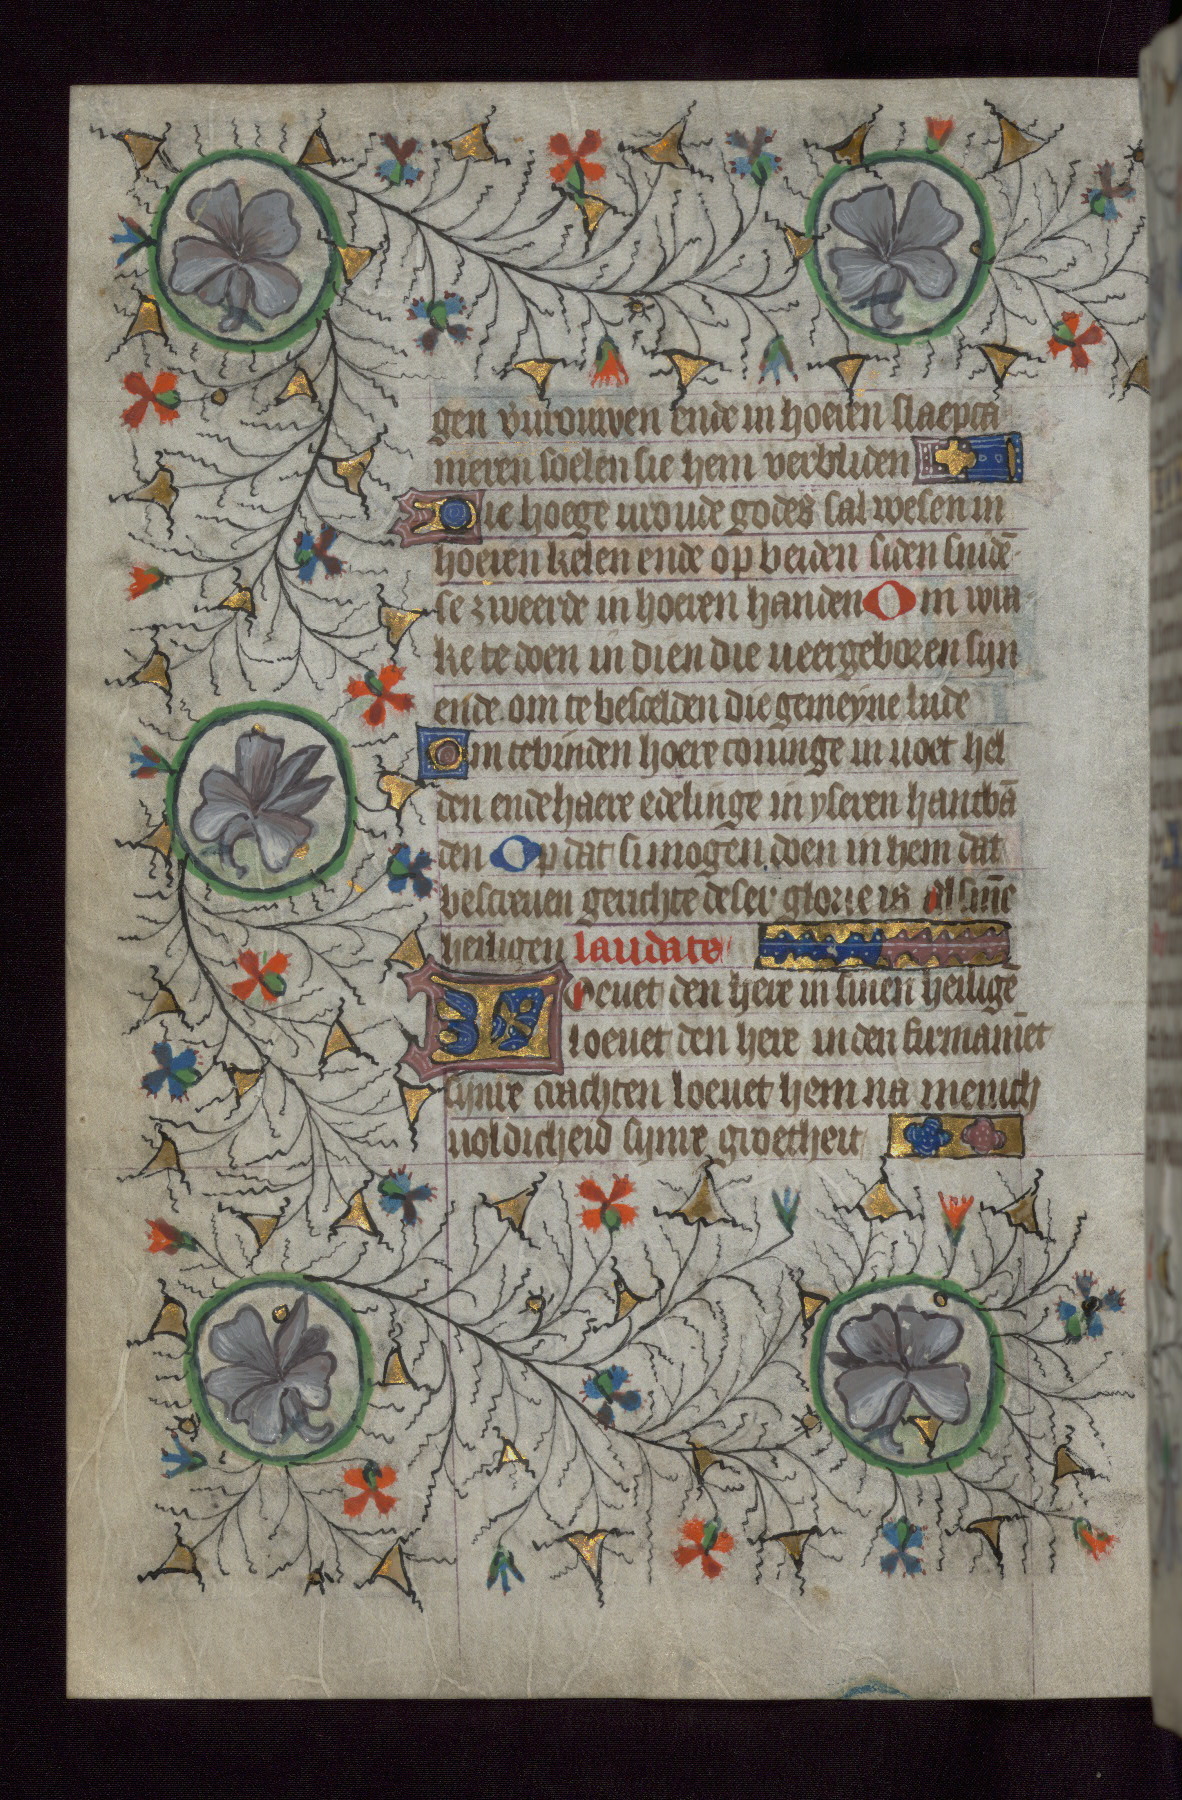 gen vurouwen ende in hoeren slaepca
meren soelen sie hem verbliden
Die hoege vroude godes sal wesen in
hoeren kelen ende op beiden siden snidē
se zweerde in hoeren handen Om wra
ke te doen in dien die neergeboren syn
ende om te bescelden die gemeyne lude
Om te binden hoere coninge in noet hel
den ende haere edelinge in yseren hantbā
den Op dat si mogen doen in hem dat
bescreuen gerichte deser glorie is al sinē
heiligen laudate
Loeuet den here in sinen heiligē
loeuet den here in den firmamēt
synre crachten loeuet hem na menich
uoldicheid synre groetheit